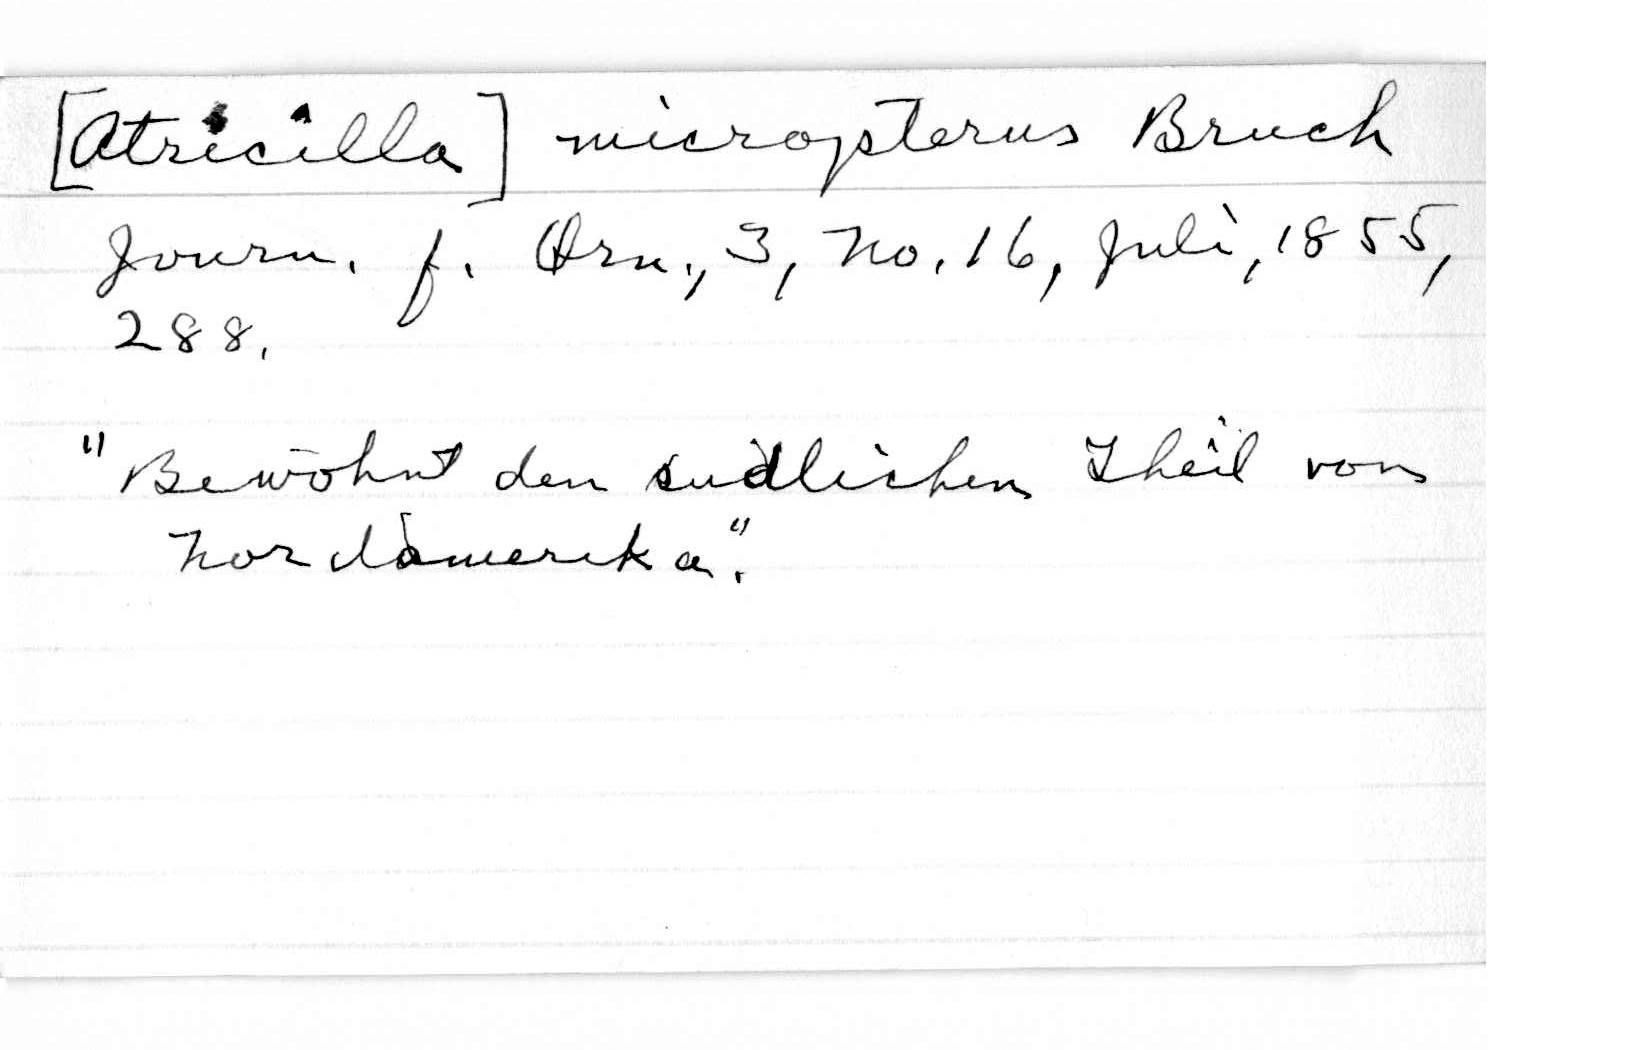 [Atricilla] micropterus Bruch
Journ. f. Orn., 3, No. 16, Juli, 1855,
288.
"Bewohnt den sudlichen Theil von
Nordamerika".